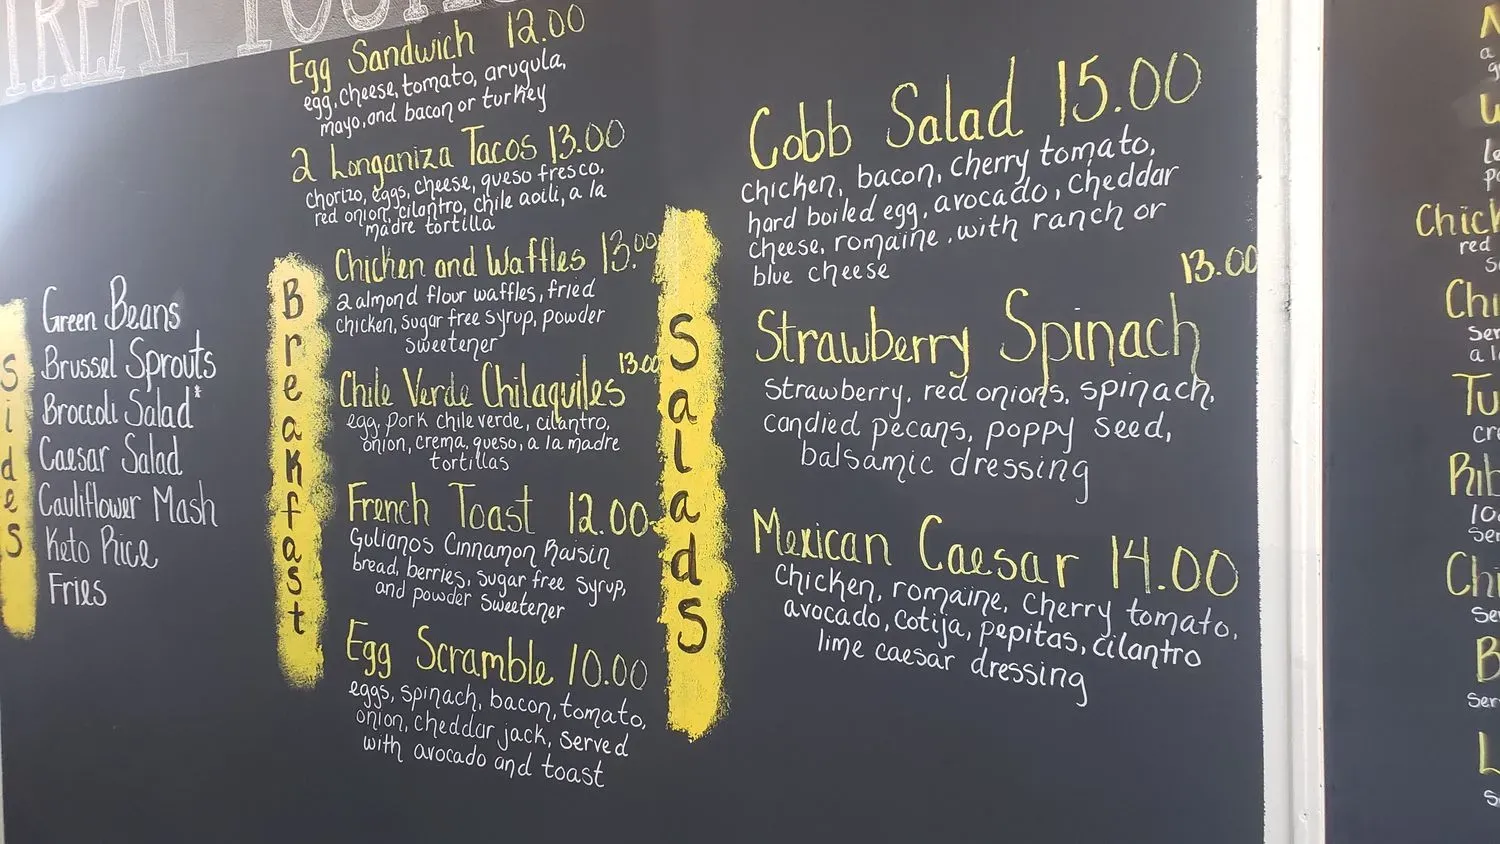 TREAT YOU
Sides
Green Beans
Brussel Sprouts
Broccoli Salad*
Caesar Salad
Cauliflower Mash
Keto Rice
Fries
Breakfast
Egg Sandwich 12.00
egg, cheese, tomato, arugula,
mayo, and bacon or turkey
2 Longaniza Tacos 13.00
chorizo, eggs, cheese, queso fresco,
red onion, cilantro, chile aoili, a la
madre tortilla
Chicken and Waffles 13.00
2 almond flour waffles, fried
chicken, sugar free syrup, powder
sweetener
Chile Verde Chilaquiles 13.00
egg, pork chile verde, cilantro,
onion, crema, queso, a la madre
tortillas
French Toast 12.00
Gulianos Cinnamon Raisin
bread, berries, sugar free syrup,
and powder sweetener
Egg Scramble 10.00
eggs, spinach, bacon, tomato,
onion, cheddar jack, served
with avocado and toast
Salads
Cobb Salad 15.00
chicken, bacon, cherry tomato,
hard boiled egg, avocado, cheddar
cheese, romaine, with ranch or
blue cheese
13.00
Strawberry Spinach
Strawberry, red onions, spinach,
candied pecans, poppy seed,
balsamic dressing
Mexican Caesar 14.00
Chicken, romaine, cherry tomato,
avocado, cotija, pepitas, cilantro
lime caesar dressing
Chick
red
Chi
Ser
a l
Tu
Rib
10
Ser
Chi
Ser
B
Ser
L